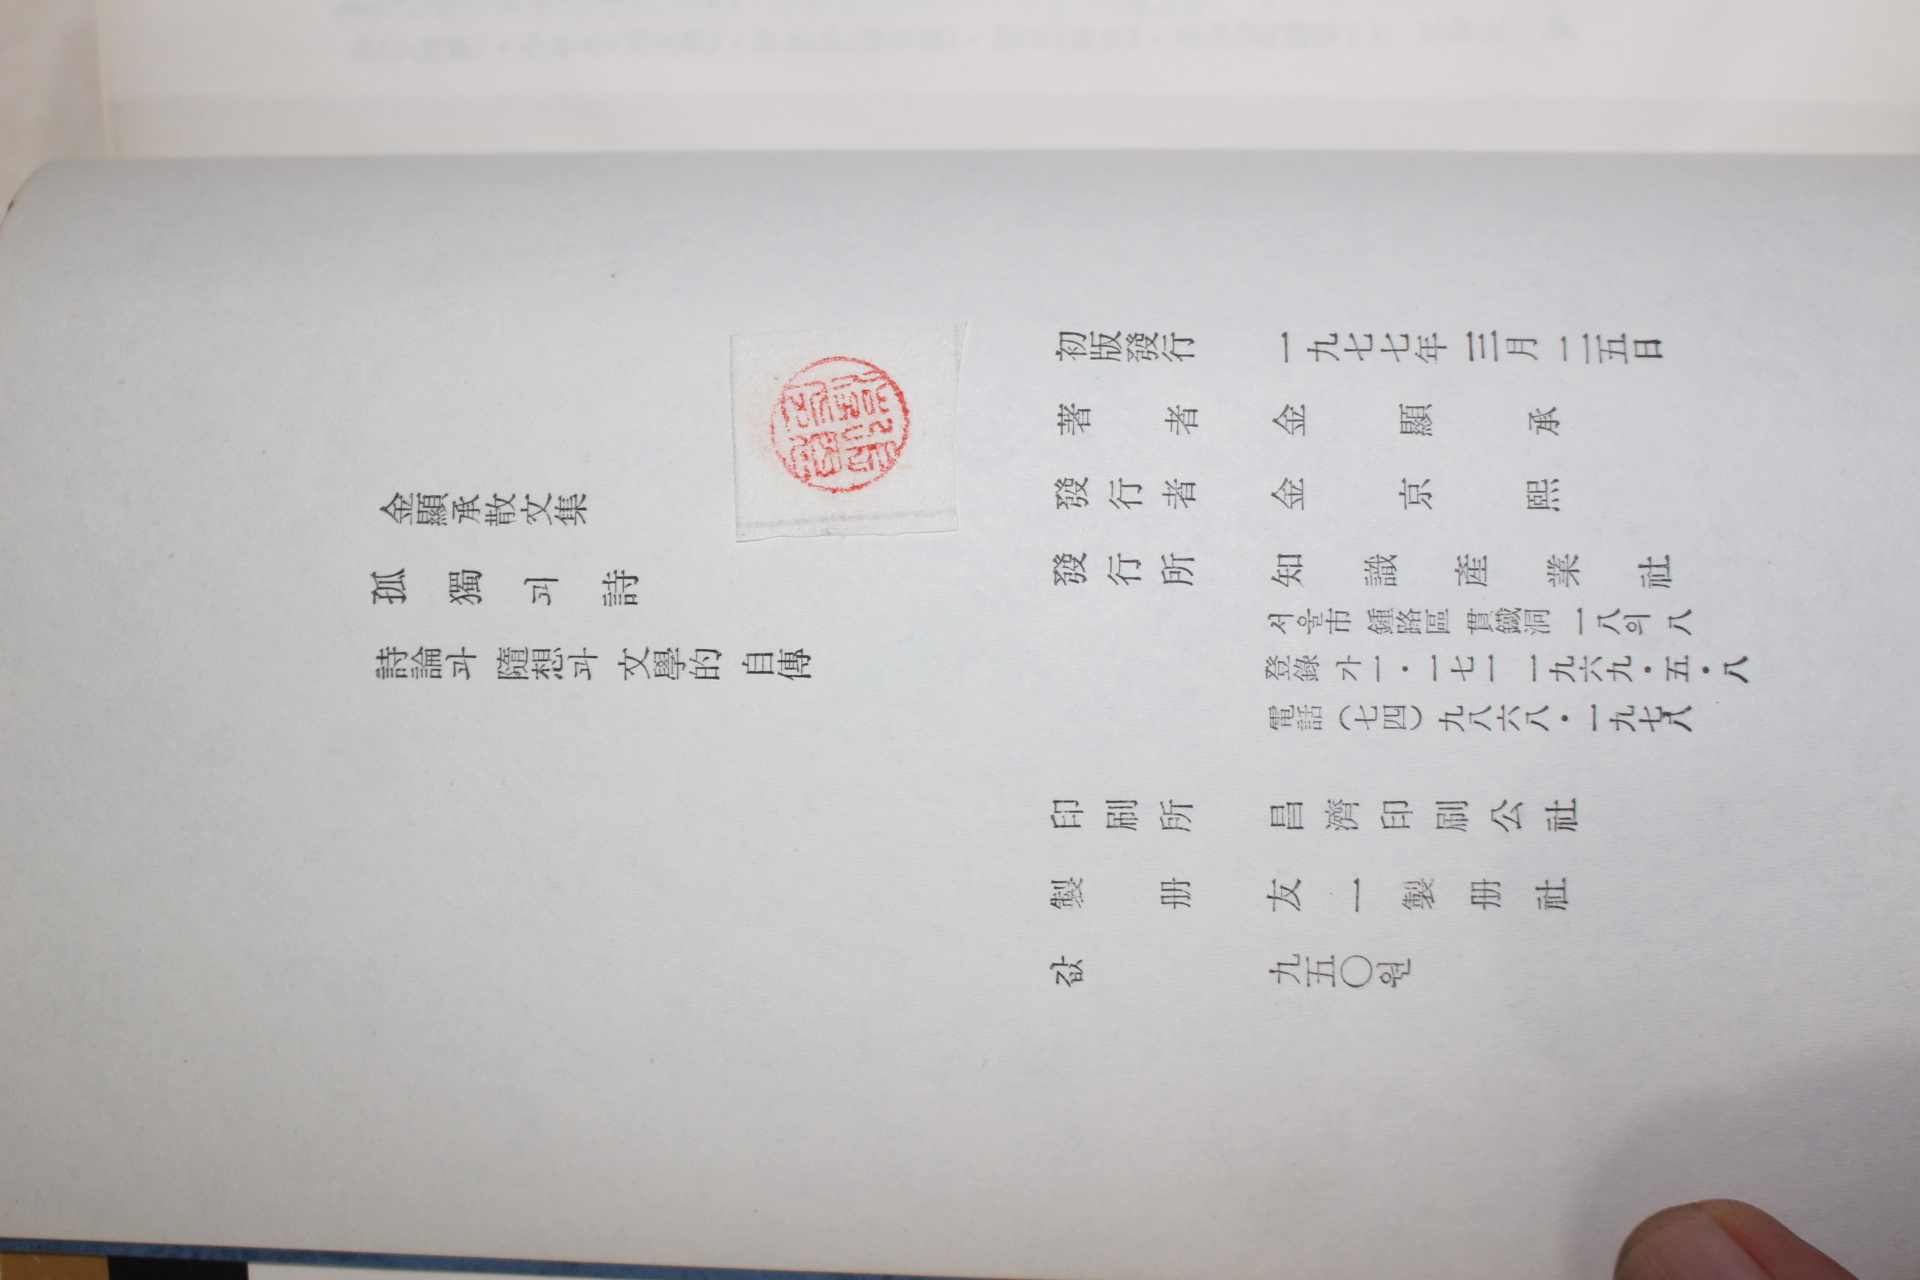 金顯承散文集
孤獨과 詩
詩論과 隨想과 文學的 自傳
初版發行 一九七七年 三月 二五日
著者 金顯承
發行者 金京熙
發行所 知識產業社
서울市 鍾路區 貫鐵洞 一八의 八
登錄 가 一・一七一 一九六九・五・八
電話 (七四) 九八六八・一九七八
印刷所 昌濟印刷公社
製册 友一製册社
값 九五〇원